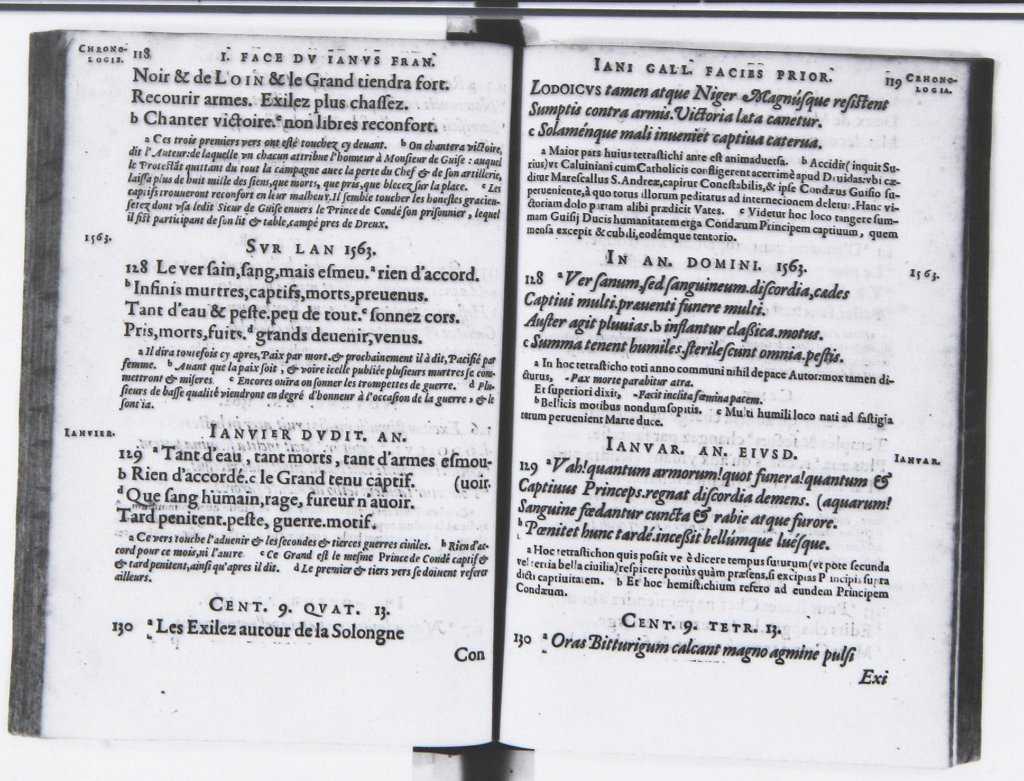 CHRONO-
LOGIE.
118
I. FACE DV IANVS FRAN.
Noir & de LOIN & le Grand tiendra fort.
Recourir armes. Exilez plus chassez.
b Chanter victoire. c non libres reconfort.
a Ces trois premiers vers ont esté touchez cy deuant. b On chantera victoire,
dit l'Auteur: de laquelle vn chacun attribue l'honneur à Monsieur de Guise: auquel
le Protestãt quittant du tout la campagne auec la perte du Chef & de son artillerie,
laissa plus de huit mille des siens, que morts, que pris, que blecez sur la place. c Les
captifs trouueront reconfort en leur malheur. Il semble toucher les honestes gracieu-
setez dont vsa ledit Sieur de Guise enuers le Prince de Condé son prisonnier, lequel
il fist participant de son lit & table, campé pres de Dreux.
1563.
SVR LAN 1563.
128 Le ver sain, sang, mais esmeu. a rien d'accord.
b Infinis murtres, captifs, morts, preuenus.
Tant d'eau & peste. peu de tout. c sonnez cors.
Pris, morts, fuits. d grands deuenir, venus.
a Il dira toutefois cy apres, Paix par mort. & prochainement il à dit, Pacifié par
femme. b Auant que la paix soit, & voire icelle publiée plusieurs murtres se com-
mettront & miseres. c Encores ouira on sonner les trompettes de guerre. d Plu-
sieurs de basse qualité viendront en degré d'honneur à l'occasion de la guerre, & le
sont ia.
IANVIER.
IANVIER DVDIT. AN.
129 a Tant d'eau, tant morts, tant d'armes esmou-
b Rien d'accordé. c le Grand tenu captif. (uoir.
d Que sang humain, rage, fureur n'auoir.
Tard penitent. peste, guerre. motif.
a Ce vers touche l'aduenir & les secondes & tierces guerres ciuiles. b Rien d'ac-
cord pour ce mois, ni l'autre. c Ce Grand est le mesme Prince de Condé captif &
& tard penitent, ainsi qu'apres il dit. d Le premier & tiers vers se doiuent referer
ailleurs.
CENT. 9. QVAT. 13.
130 a Les Exilez autour de la Solongne
Con
IANI GALL. FACIES PRIOR.
119
CRHONO-
LOGIA.
LODOICVS tamen atque Niger Magnúsque resistent
Sumptis contra armis. Victoria lata canetur.
c Solamenque mali inueniet captiua caterua.
a Maior pars huius tetrastichi ante est animaduersa. b Accidit (inquit Su-
rius) vt Caluiniani cum Catholicis confligerent acerrimè apud Druidas. vbi cæ-
ditur Marescallus S. Andreæ, capitur Conestabilis, & ipse Condæus Guisio su-
perueniente, à quo totus illorum peditatus ad internecionem deletur. Hanc vi-
ctoriam dolo partam alibi prædicit Vates. c Videtur hoc loco tangere sum-
mam Guisij Ducis humanitatem erga Condæum Principem captiuum, quem
mensa excepit & cubili, eodémque tentorio.
IN AN. DOMINI. 1563.
1563.
128 a Ver sanum, sed sanguineum. discordia, cædes
Captiui multi. præuenti funere multi.
Auster agit pluuias. b inflantur classica. motus.
c Summa tenent humiles. sterilescunt omnia. pestis.
a In hoc tetrasticho toti anno communi nihil de pace Autor: mox tamen di-
cturus, - Pax morte parabitur atra.
Et superiori dixit, - Pacit inclita fœmina pacem.
b Bellicis motibus nondum sopitis. c Multi humili loco nati ad fastigia
rerum peruenient Marte duce.
IANVAR. AN. EIVSD.
IANVAR.
129 a Vah! quantum armorum! quot funera! quantum &
Captiuus Princeps. regnat discordia demens. (aquarum!
Sanguine fœdantur cuncta & rabie atque furore.
b Pœnitet hunc tardè. incessit bellúmque luésque.
a Hoc tetrastichon quis possit vè è dicere tempus futurum (vt pote secunda
vel tertia bella ciuilia) respicere potiùs quàm præsens, si excipias Principis supra
dicti captiuitatem. b Et hoc hemistichium refero ad eundem Principem
Condæum.
CENT. 9. TETR. 13.
130 a Oras Bitturigum calcant magno agmine pulsi
Exi